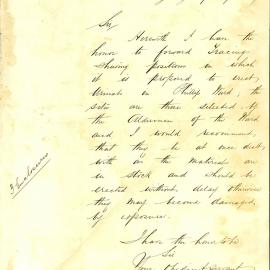 Sir
Herewith I have the
honor to forward Tracing
Shewing positions in which
it is proposed to erect
Urinals in Phillip Ward; the
sites are those selected by
the Aldermen of the Ward
and I would recommend,
that this be at once dealt
with as the materials are
in stock and should be
erected without delay otherwise
they may become damaged,
by exposure.
I have the honor to be
Sir
Your obedient servant
3 Enclosures